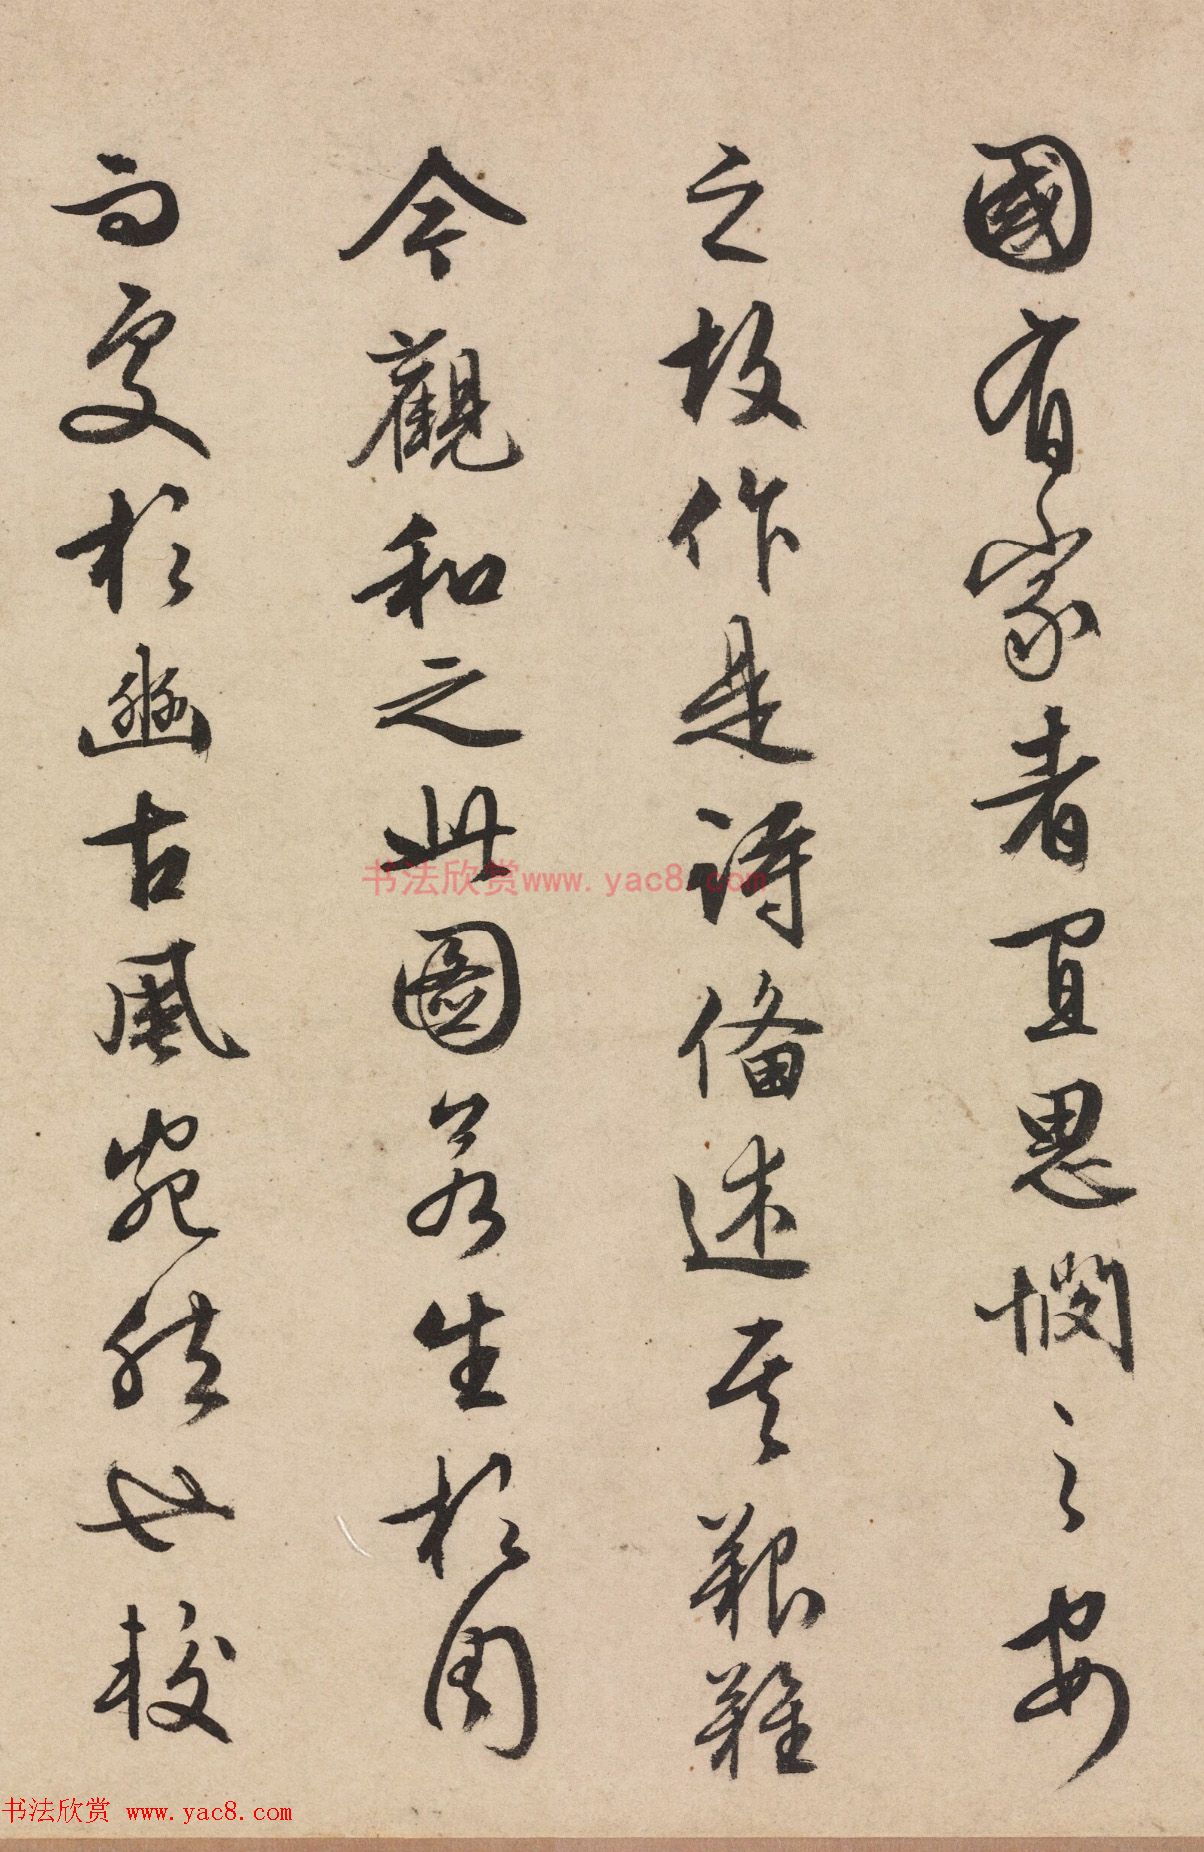 國有家者宜思憫之安
之故作是詩備述其艱難
今觀和之此圖若生於周
而處於豳古風宛然廿核
书法欣赏www.yac8.com
书法欣赏 www.yac8.com